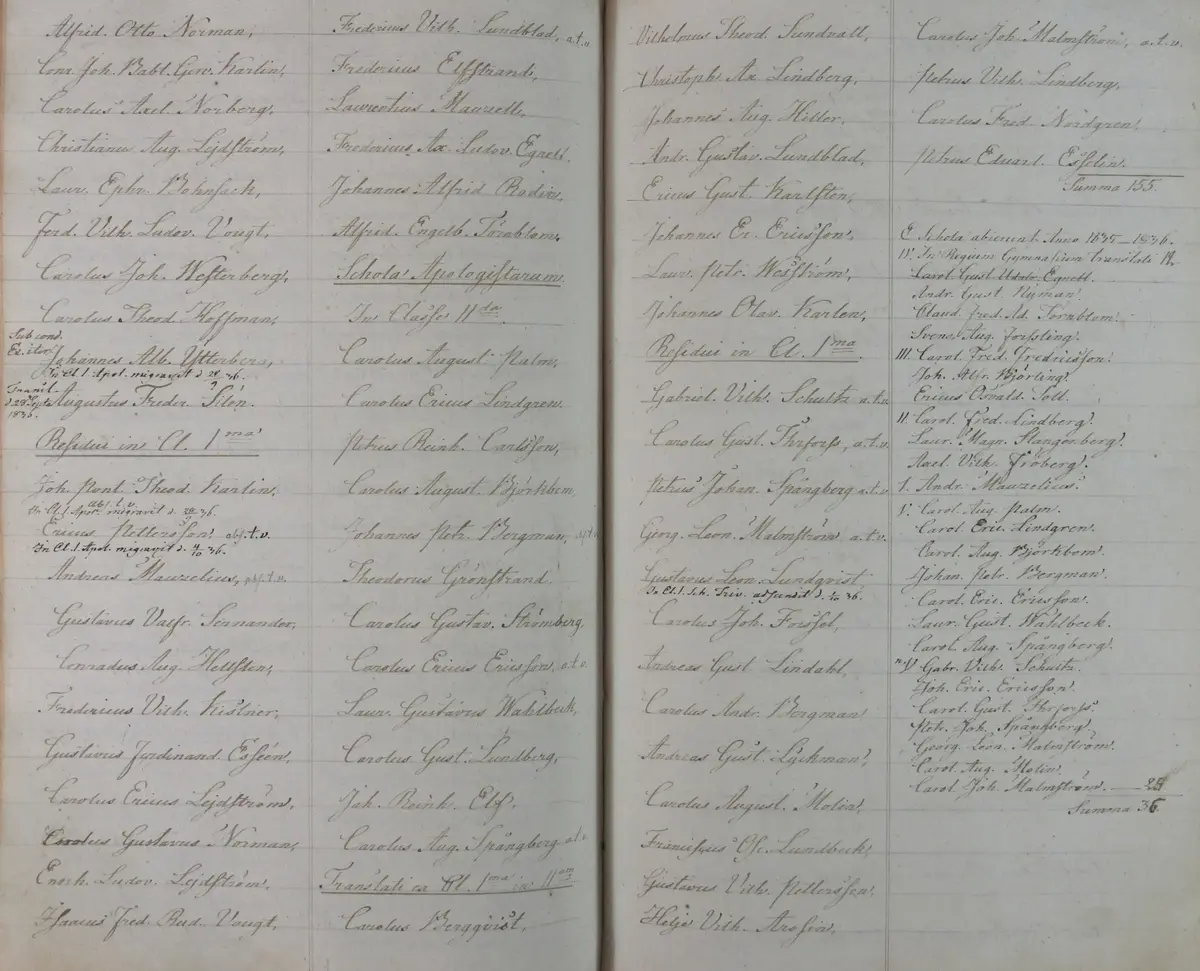 Alfrid. Otto Norman,
Conr. Joh. Babt. Gew. Karlin,
Carolus Axel. Norberg,
Christianu Aug. Lejdström,
Laur. Ephr. Bohnsack,
Ferd. Vilh. Ludov. Vougt,
Carolus Joh. Westerberg,
Carolus Theod. Hoffman,
Sub cond.
Johannes Alb. Ytterberg,
In Cl. 1 Apol. migravit d. 36.
Transl.
d. 28 Sept.
1836.
Augustus Freder. Filen.
Residui in Cl. 1ma
Joh. Pont. Theod. Karlin.
abs. t. v.
In Cl. 1 Apol. migravit d. 36.
Ericus Pettersson abs. t. v.
In Cl. 1 Apol. migravit d. 4/10 36.
Andreas Mauzelius, abs. t. v.
Gustavus Valfr. Sernander,
Conradus Aug. Hellsten,
Fredericus Vilh. Kistner,
Gustavus Ferdinand Esséen,
Carolus Ericus Lejdström,
Carolus Gustavus Norman,
Enoch. Ludov. Lejdström.
Isaacus Fred. Rud. Vougt,
Fredericus Vilh. Lundblad, a.t.v.
Fredericus Elfstrand,
Laurentius Mauzell,
Fredericus Ax. Ludov. Egnell.
Johannes Alfrid Rodin,
Alfrid. Engelb. Törnblom.
Schola Apologistarum.
In Classe IIda.
Carolus August Palm,
Carolus Ericus Lindgren.
Petrus Reinh. Carlsson,
Carolus August. Björkbom.
Johannes Petr. Bergman, abs.t.v.
Theodorus Grönstrand
Carolus Gustav. Strömberg.
Carolus Ericus Ericsson, a.t.v.
Laur. Gustavus Wahlbeck,
Carolus Gust. Lundberg,
Joh. Reinh. Elf.
Carolus Aug. Spångberg a.t.v.
Translati ex Cl. 1ma in IIam
Carolus Bergqvist,
Vilhelmus Theod. Sundvall,
Christoph. Ax Lindberg,
Johannes Aug. Hiller,
Andr. Gustav. Lundblad,
Ericus Gust. Karlsten,
Johannes Er. Ericsson,
Laur. Petr. Wesström,
Johannes Olav. Karlen,
Residui in Cl. 1ma
Gabriel. Vilh. Schultz a.t.v.
Carolus Gust. Thrforss, a.t.v.
Petrus Johan. Spångberg a.t.v.
Georg. Leon. Malmström a.t.v.
Gustavus Leon. Lundqvist
In Cl. 1. Sch. Triv. adscendit d. 1/10 36.
Carolus Joh. Forssel,
Andreas Gust Lindahl,
Carolus Andr. Bergman
Andreas Gust. Lyckman,
Carolus August. Molin,
Franciscus Os. Lundbeck,
Gustavus Vilh. Pettersson,
Helje Vilh. Arosin,
Carolus Joh. Malmström, a.t.v.
Petrus Vilh. Lindberg,
Carolus Fred. Nordgren,
Petrus Eduard. Esselin.
Summa 155.
E Schola abierunt Anno 1835–1836.
IV. In Regium Gymnasium translati 11.
Carol. Gust. Udalr. Egnell.
Andr. Gust. Nyman.
Claud. Fred. Ad. Törnblom.
Svens. Aug. Forssling.
III. Carol. Fred. Fredricsson.
Joh. Alfr. Björling.
Ericus Osvald. Toll.
II. Carol. Fred. Lindberg.
Laur. Magn. Stangenberg.
Axel Vilh. Fröberg.
1. Andr. Mauzelius.
V. Carol. Aug. Palm.
Carol. Eric. Lindgren.
Carol. Aug. Björkbom.
Johan. Petr. Bergman.
Carol. Eric. Ericsson.
Laur. Gust. Wahlbeck.
Carol. Aug. Spångberg.
Gabr. Vilh. Schultz.
Joh. Eric. Ericsson.
Carol. Gust. Thrforss.
Petr. Joh. Spångberg.
Georg. Leon. Malmström.
Carol. Aug. Molin.
Carol. Joh. Malmström. 25
Summa 36.